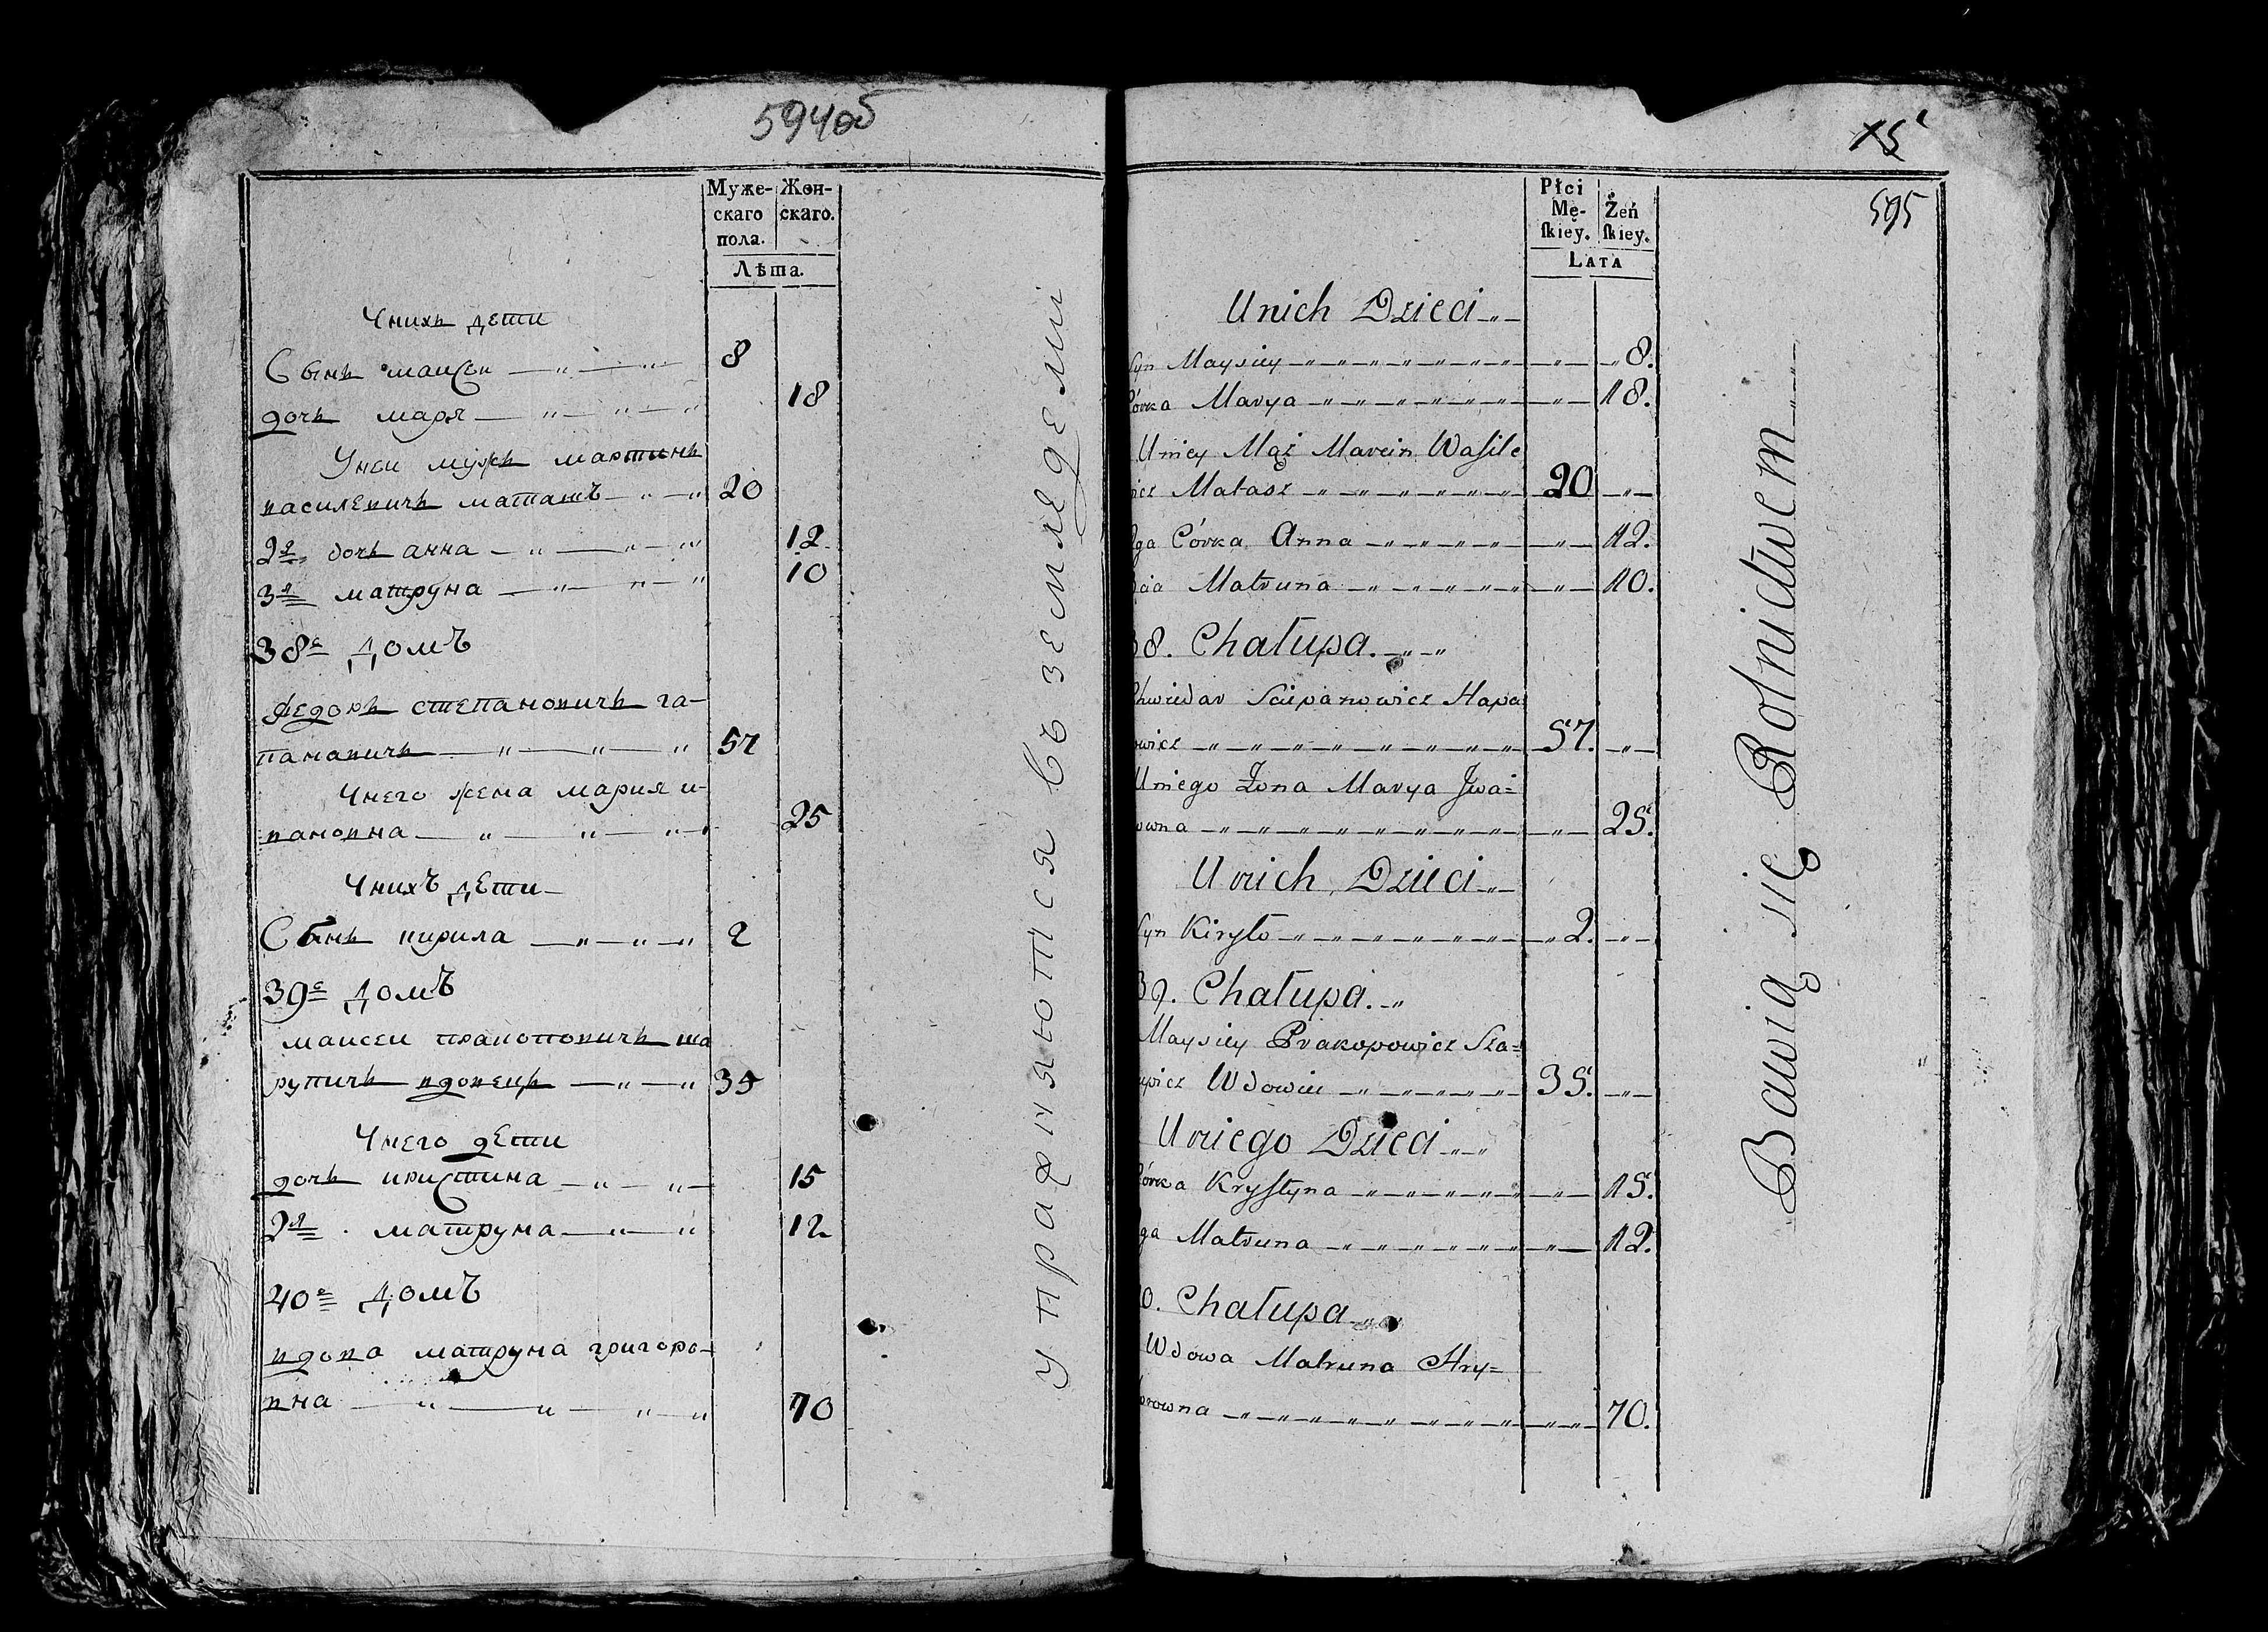 594об
Муже- Жен-
скаго скаго.
пола.
Лѣта.
Унихъ дети
Сынъ маисеи — „ — „ 8
дочь маря — „ — „ — „ 18
Унеи мужъ мартинъ
василевичъ маташъ — „ — „ 20
2я дочь анна — „ — „ — „ 12
3я матруна — „ — „ — „ 10
38е домъ
Федоръ степановичъ га-
пановичъ — „ — „ — „ 57
Унего жена мария и-
вановна — „ — „ — „ 25
Унихъ дети —
Сынъ кирила — „ — „ — „ 2
39е домъ
маисеи пракоповичъ ша
рупичъ вдовецъ — „ — „ 35
Унего дети
дочь кристина — „ — „ — 15
2я матруна — „ — „ 12
40е домъ
вдова матруна григоро-
вна — „ — „ — „ — „ 70
упражняются въ земледелии
X5
595
Płci
Mę- Żeń
skiey. skiey.
LATA
Unich Dzieci „
Syn Maysiey — „ — „ 8.
Córka Marya — „ — „ 18.
Uniey Mąż Marcin Wasile
icz Matasz — „ — „ 20 „
ga Córka Anna — „ — „ 12.
cia Matruna — „ — „ 10.
38. Chałupa. „ „
Chwiedar Sciepanowicz Hapa
owicz — „ — „ 57. „
Uniego Żona Marya Jwa=
owna — „ — „ 25.
Unich Dzieci „
Syn Kiryło — „ — „ 2. „
39. Chałupa. „
Maysiey Prakopowicz Sza=
upicz Wdowiec — „ — „ 35. „
Uniego Dzieci „ „
Córka Krystyna — „ — „ 15.
ga Matruna — „ — „ 12.
0. Chałupa „
Wdowa Matruna Hry=
orowna — „ — „ 70.
Bawią się Rolnictwem